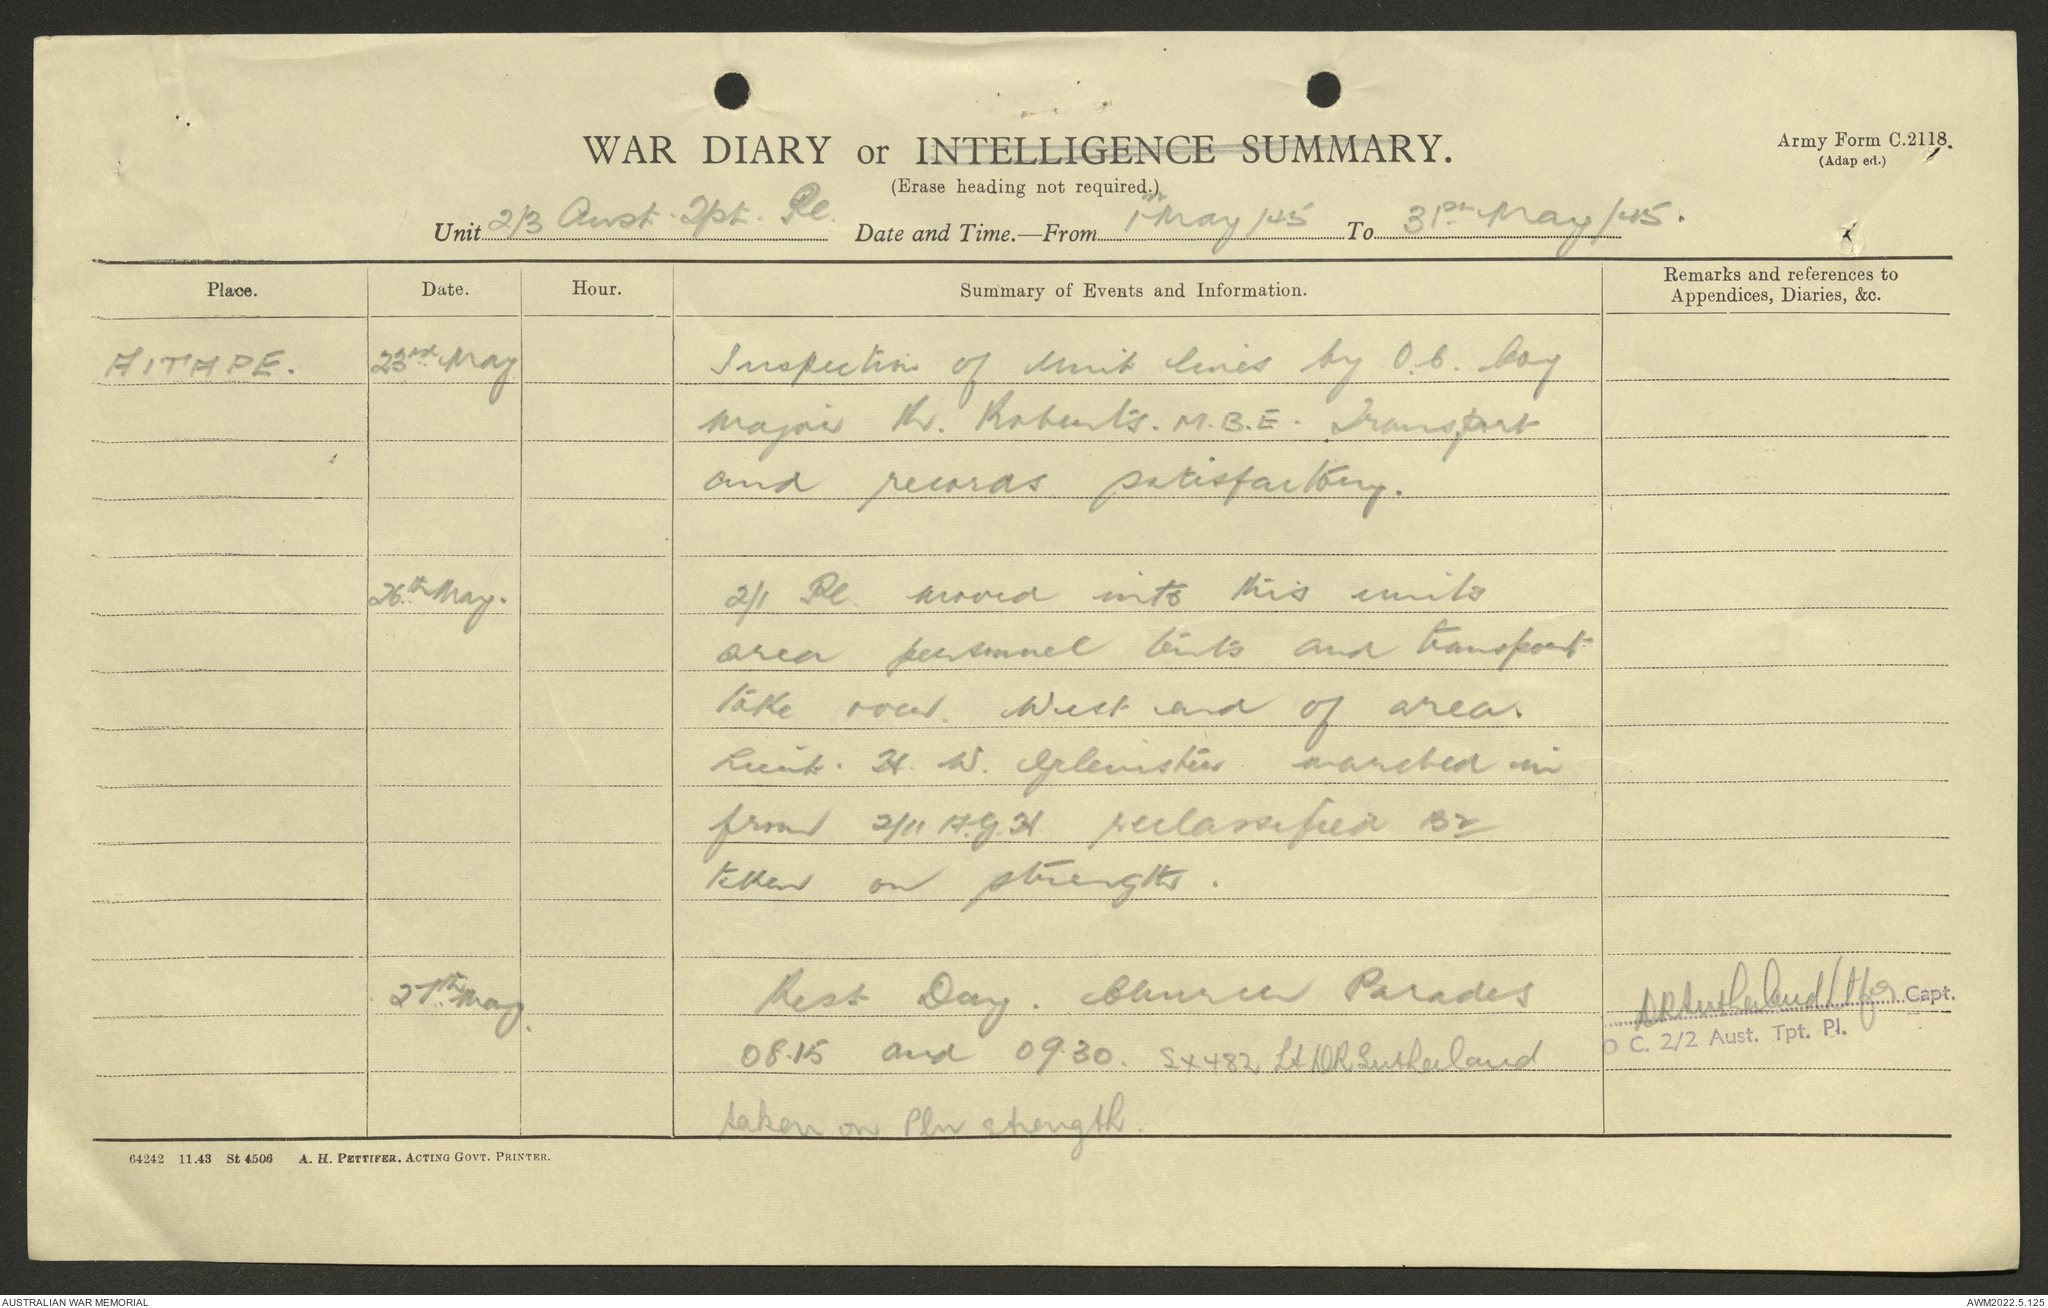 WAR DIARY or INTELLIGENCE SUMMARY.
Army Form C.2118.
(Adap ed.)
(Erase heading not required.)
Unit 2/3 Aust. Tpt. Pl. Date and Time.—From 1st May/45 To 31st May/45.
Place. Date. Hour. Summary of Events and Information. Remarks and references to
Appendices, Diaries, &c.
AITAPE. 23rd May Inspection of Unit lines by O.C. Coy
Major Roberts. M.B.E. Transport
and records satisfactory.
26th May. 2/1 Pl. moved into this units
area personnel tents and transport
take over West end of area.
Lieut. H. W. Glenister marched in
from 2/11 A.G.H reclassified B2
taken on strength.
27th May Rest Day. Church Parades
08.15 and 09.30. SX482 Lt DR Sutherland
taken on Pln strength.
DRSutherland Lt for Capt.
O C. 2/2 Aust. Tpt. Pl.
64242 11.43 St 4506 A. H. PETTIFER. ACTING GOVT. PRINTER.
AUSTRALIAN WAR MEMORIAL
AWM2022.5.125